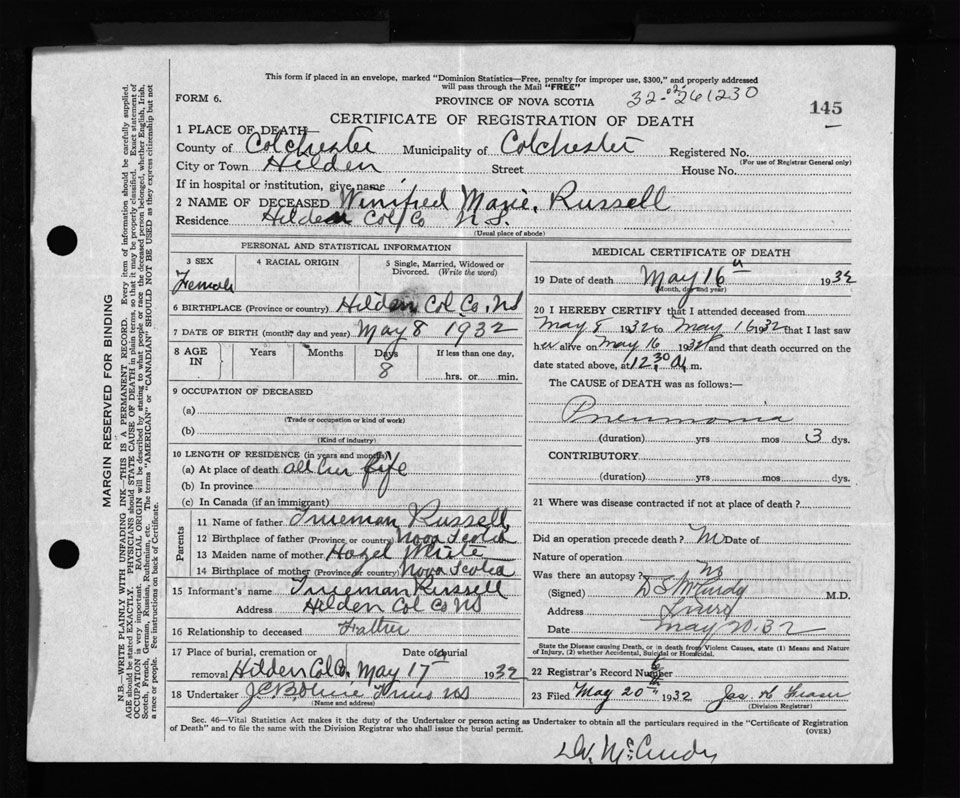 This form if placed in an envelope, marked "Dominion Statistics—Free, penalty for improper use, $300," and properly addressed
will pass through the Mail "FREE"
FORM 6.
PROVINCE OF NOVA SCOTIA
32-02-261230
145
CERTIFICATE OF REGISTRATION OF DEATH
1 PLACE OF DEATH
County of Colchester Municipality of Colchester Registered No.
(For use of Registrar General only)
City or Town Hilden Street House No.
If in hospital or institution, give name
2 NAME OF DECEASED Winifred Marie Russell
Residence Hilden Col Co N.S.
(Usual place of abode)
PERSONAL AND STATISTICAL INFORMATION
3 SEX 4 RACIAL ORIGIN 5 Single, Married, Widowed or
Divorced. (Write the word)
Female
6 BIRTHPLACE (Province or country) Hilden Col Co, NS
7 DATE OF BIRTH (month, day and year) May 8 1932
8 AGE IN Years Months Days If less than one day,
8 hrs. or min.
9 OCCUPATION OF DECEASED
(a)
(Trade or occupation or kind of work)
(b)
(Kind of industry)
10 LENGTH OF RESIDENCE (in years and months)
(a) At place of death all her life
(b) In province
(c) In Canada (if an immigrant)
Parents
11 Name of father Trueman Russell
12 Birthplace of father (Province or country) Nova Scotia
13 Maiden name of mother Hazel White
14 Birthplace of mother (Province or country) Nova Scotia
15 Informant's name Trueman Russell
Address Hilden Col Co NS
16 Relationship to deceased Father
17 Place of burial, cremation or Date of burial
removal Hilden Col Co. May 17 1932
18 Undertaker NS
(Name and address)
MEDICAL CERTIFICATE OF DEATH
19 Date of death May 16 1932
(Month, day and year)
20 I HEREBY CERTIFY that I attended deceased from
May 8 1932 to May 16 1932 that I last saw
her alive on May 16 1932 and that death occurred on the
date stated above, at 12.30 A. m.
The CAUSE of DEATH was as follows:—
Pneumonia
(duration) yrs mos 3 dys.
CONTRIBUTORY
(duration) yrs mos dys.
21 Where was disease contracted if not at place of death?
Did an operation precede death? No Date of
Nature of operation
Was there an autopsy? No
(Signed) D S McCurdy M.D.
Address Truro
Date May 20-32
State the Disease causing Death, or in death from Violent Causes, state (1) Means and Nature
of Injury, (2) whether Accidental, Suicidal or Homicidal.
22 Registrar's Record Number
23 Filed May 20th 1932 Jas. H. Fraser
(Division Registrar)
Sec. 46—Vital Statistics Act makes it the duty of the Undertaker or person acting as Undertaker to obtain all the particulars required in the "Certificate of Registration
of Death" and to file the same with the Division Registrar who shall issue the burial permit.
(OVER)
McCurdy
MARGIN RESERVED FOR BINDING
N.B.—WRITE PLAINLY WITH UNFADING INK—THIS IS A PERMANENT RECORD. Every item of information should be carefully supplied.
AGE should be stated EXACTLY. PHYSICIANS should STATE CAUSE OF DEATH in plain terms, so that it may be properly classified. Exact statement of
OCCUPATION is very important. RACIAL ORIGIN will be described by stating to what people or race the deceased person belonged, whether English, Irish,
Scotch, French, German, Russian, Ruthenian, etc. The terms "AMERICAN" or "CANADIAN" SHOULD NOT BE USED as they express citizenship but not
a race or people. See instructions on back of Certificate.